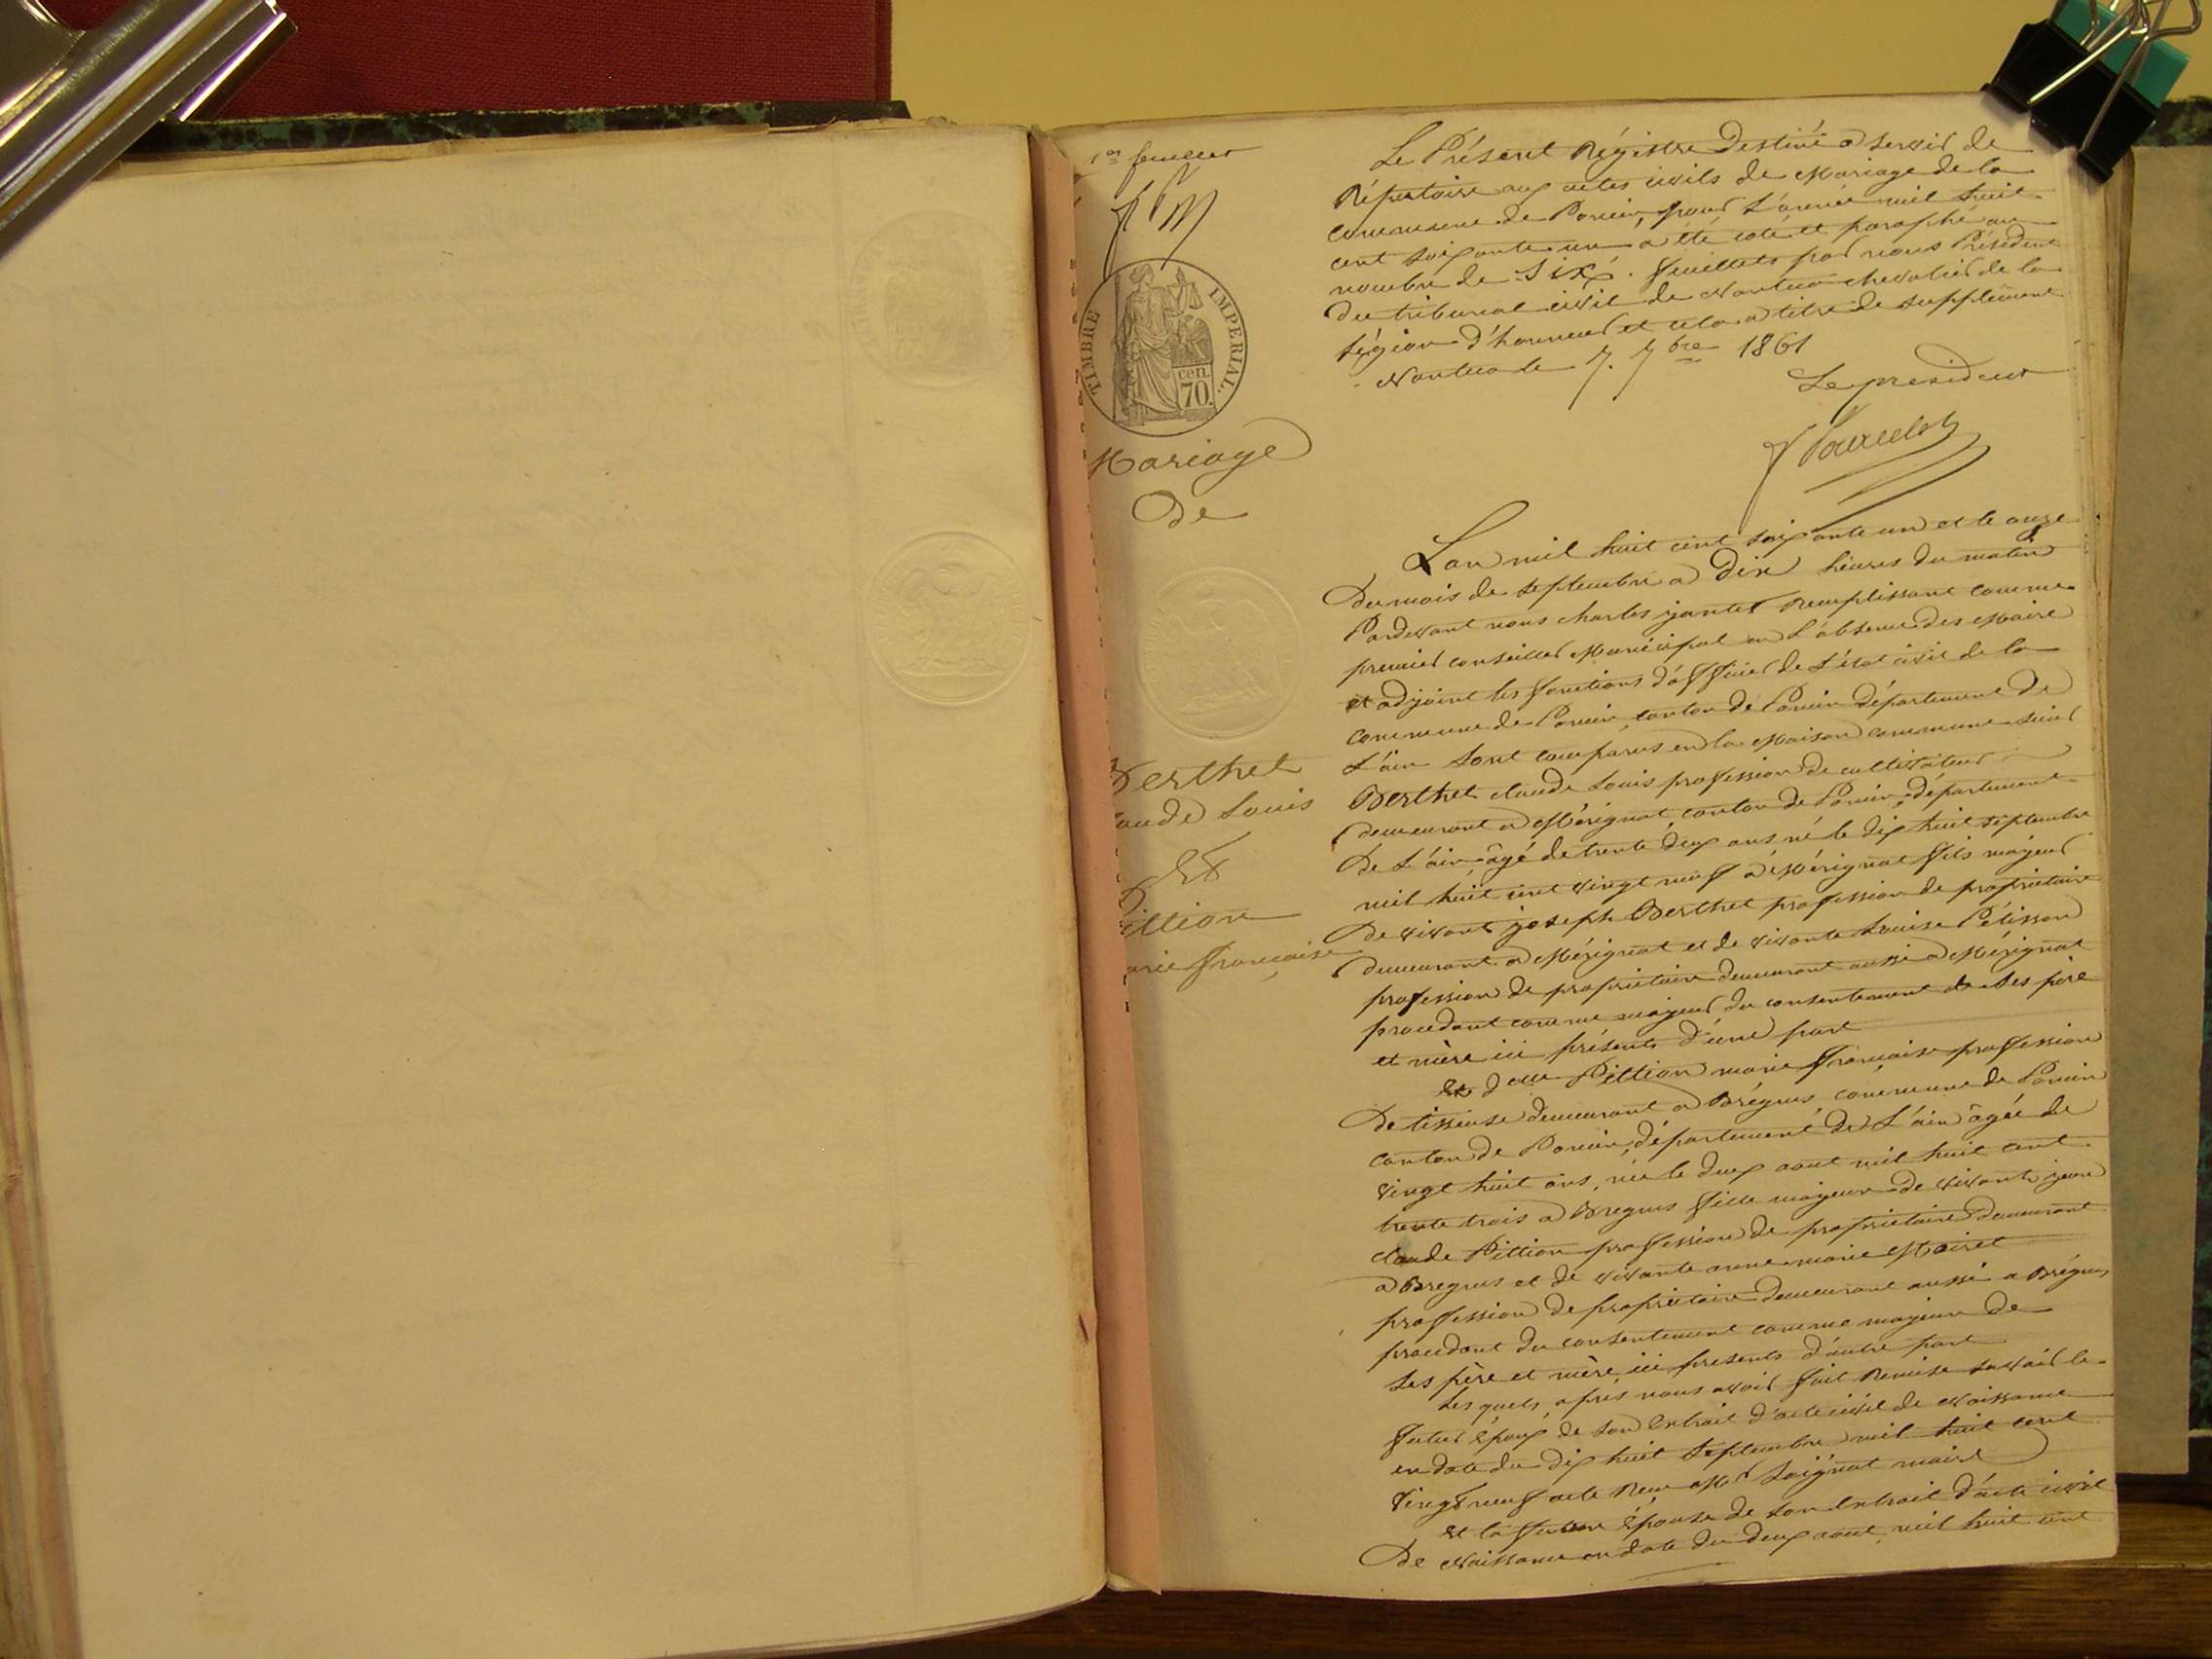 1er feuillet
TIMBRE IMPERIAL.
cen.
70.
Mariage
De
Berthet
aude Louis
Et
ittion
arie françoise
Le Présent Régistre Destiné a servir de
Répertoire aux actes civils de Mariage de la
commune de Poncin, pour L'année mil huit
cent soixante un a été coté et paraphé au
nombre de Six. feuillets par nous Président
du tribunal civil de Nantua chevalier de la
Légion d'honneur et cela a titre de supplément
Nantua le 7. 7bre 1861
Le président
Lan mil huit cent soixante un et le onze
Du mois de septembre a Dix heures du matin
Pardevant nous charles jantet Remplissant comme
premier conseiller Municipal en L'absence des Maire
et adjoint les fonctions d'officier de L'état civil de la
commune de Poncin, canton de Poncin département de
L'ain sont comparus en la Maison commune sieur
Berthet claude Louis profession de cultivateur
demeurant a Mérignat canton de Poncin, département
De L'ain âgé de trente deux ans né le dix huit septembre
mil huit cent vingt neuf a Mérignat fils majeur
De vivant joseph Berthet profession de propriétaire
demeurant a Mérignat et de vivante Louise Pélisson
profession de propriétaire demeurant aussi a Mérignat
procedant comme majeur du consentement de Ses père
et mère ici présents d'une part
Et delle Pittion marie françoise profession
De tisseuse demeurant a Brégnus commune de Poncin
canton de Poncin, département De L'ain âgée de
vingt huit ans, née le deux aout mil huit cent
trente trois a Bregnus fille majeure de vivant jean
claude Pittion profession de propriétaire demeurant
a Bregnus et de vivante anne marie Mairet
profession de propriétaire demeurant aussi a Brégnus
procedant du consentement comme majeure de
Ses père et mère ici presents d'autre part
Les quels, après nous avoir fait Remise savoir le
futur Epoux de son Extrait d'acte civil de Naissance
en date du dix huit septembre mil huit cent
vingt neuf acte Reçu Mr Saignat maire
Et la future Epouse de son Extrait d'acte civil
De Naissance en date du deux aout, mil huit cent